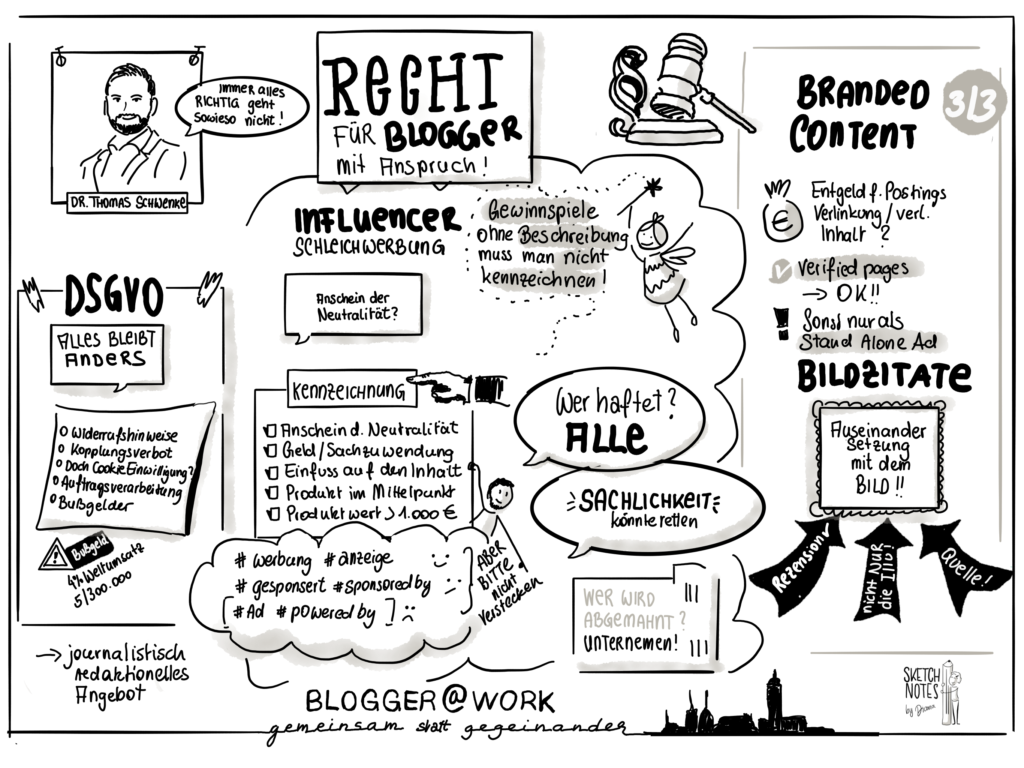 immer alles
RICHTIG geht
sowieso nicht!
DR. THOMAS SCHWENKE
RECHT
FÜR BLOGGER
mit Anspruch!
INFLUENCER
SCHLEICHWERBUNG
Gewinnspiele
ohne Beschreibung
muss man nicht
kennzeichnen!
Anschein der
Neutralität?
DSGVO
ALLES BLEIBT
ANDERS
Widerrufshinweise
Kopplungsverbot
Doch Cookie Einwilligung?
Auftragsverarbeitung
Bußgelder
Bußgeld
4% Weltumsatz
5/300.000
→ journalistisch
redaktionelles
Angebot
KENNZEICHNUNG
Anschein d. Neutralität
Geld/Sachzuwendung
Einfuss auf den Inhalt
Produkt im Mittelpunkt
Produktwert > 1.000 €
# werbung # anzeige
# gesponsert # sponsored by
[# Ad # powered by]
ABER
BITTE
nicht
verstecken
Wer haftet?
ALLE
SACHLICHKEIT
könnte retten
WER WIRD
ABGEMAHNT?
UNTERNEMEN!
BRANDED
CONTENT
3/3
€
Entgeld f. Postings
Verlinkung / verl.
Inhalt ?
Verified pages
→ OK!!
! Sonst nur als
Stand Alone Ad
BILDZITATE
Auseinander
Setzung
mit dem
BILD !!
Rezension!
nicht NUR
die Illu!
Quelle!
BLOGGER@WORK
gemeinsam statt gegeinander
SKETCH
NOTES
by Diana